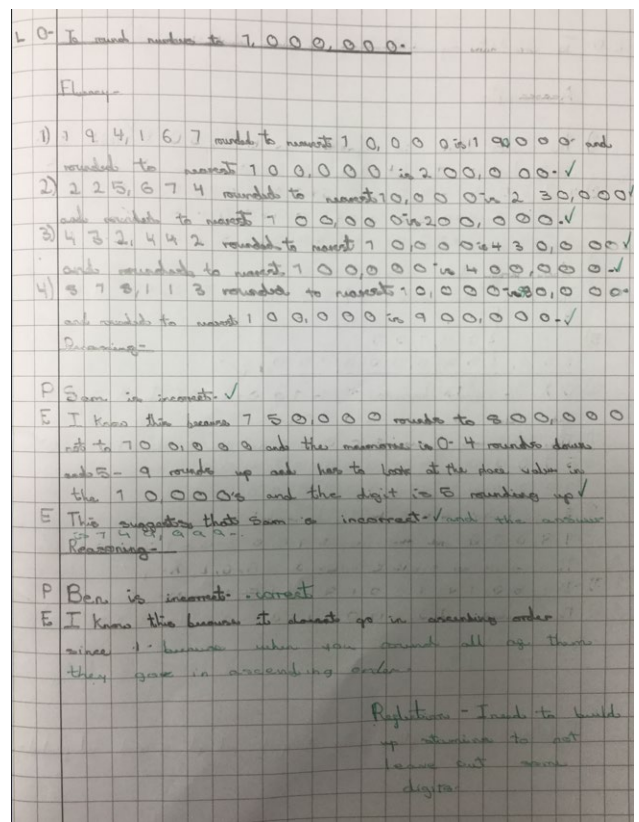 L O- To round numbers to 1,000,000.
Fluency-
1) 194,167 rounded to nearest 10,000 is 190000 and
rounded to nearest 100,000 is 200,000. ✓
2) 225,674 rounded to nearest 10,000 is 230,000 ✓
and rounded to nearest 100,000 is 200,000. ✓
3) 432,442 rounded to nearest 10,000 is 430,000 ✓
and rounded to nearest 100,000 is 400,000. ✓
4) 878,113 rounded to nearest 10,000 is 80,000.
and rounded to nearest 100,000 is 900,000. ✓
Reasoning-
P Sam is incorrect. ✓
E I know this because 750,000 rounds to 800,000
not to 700,000 and the is 0-4 rounds down
and 5-9 rounds up and has to look at the place value in
the 10,000's and the digit is 5 rounding up ✓
E This suggests that Sam is incorrect. ✓ and the answer
is 749,999.
Reasoning-
P Ben is incorrect. correct
E I know this because it doesnt go in ascending order
since 1. because when you round all of them
they gave in ascending order.
Reflection - I need to build
up stamina to not
leave out some
digits.